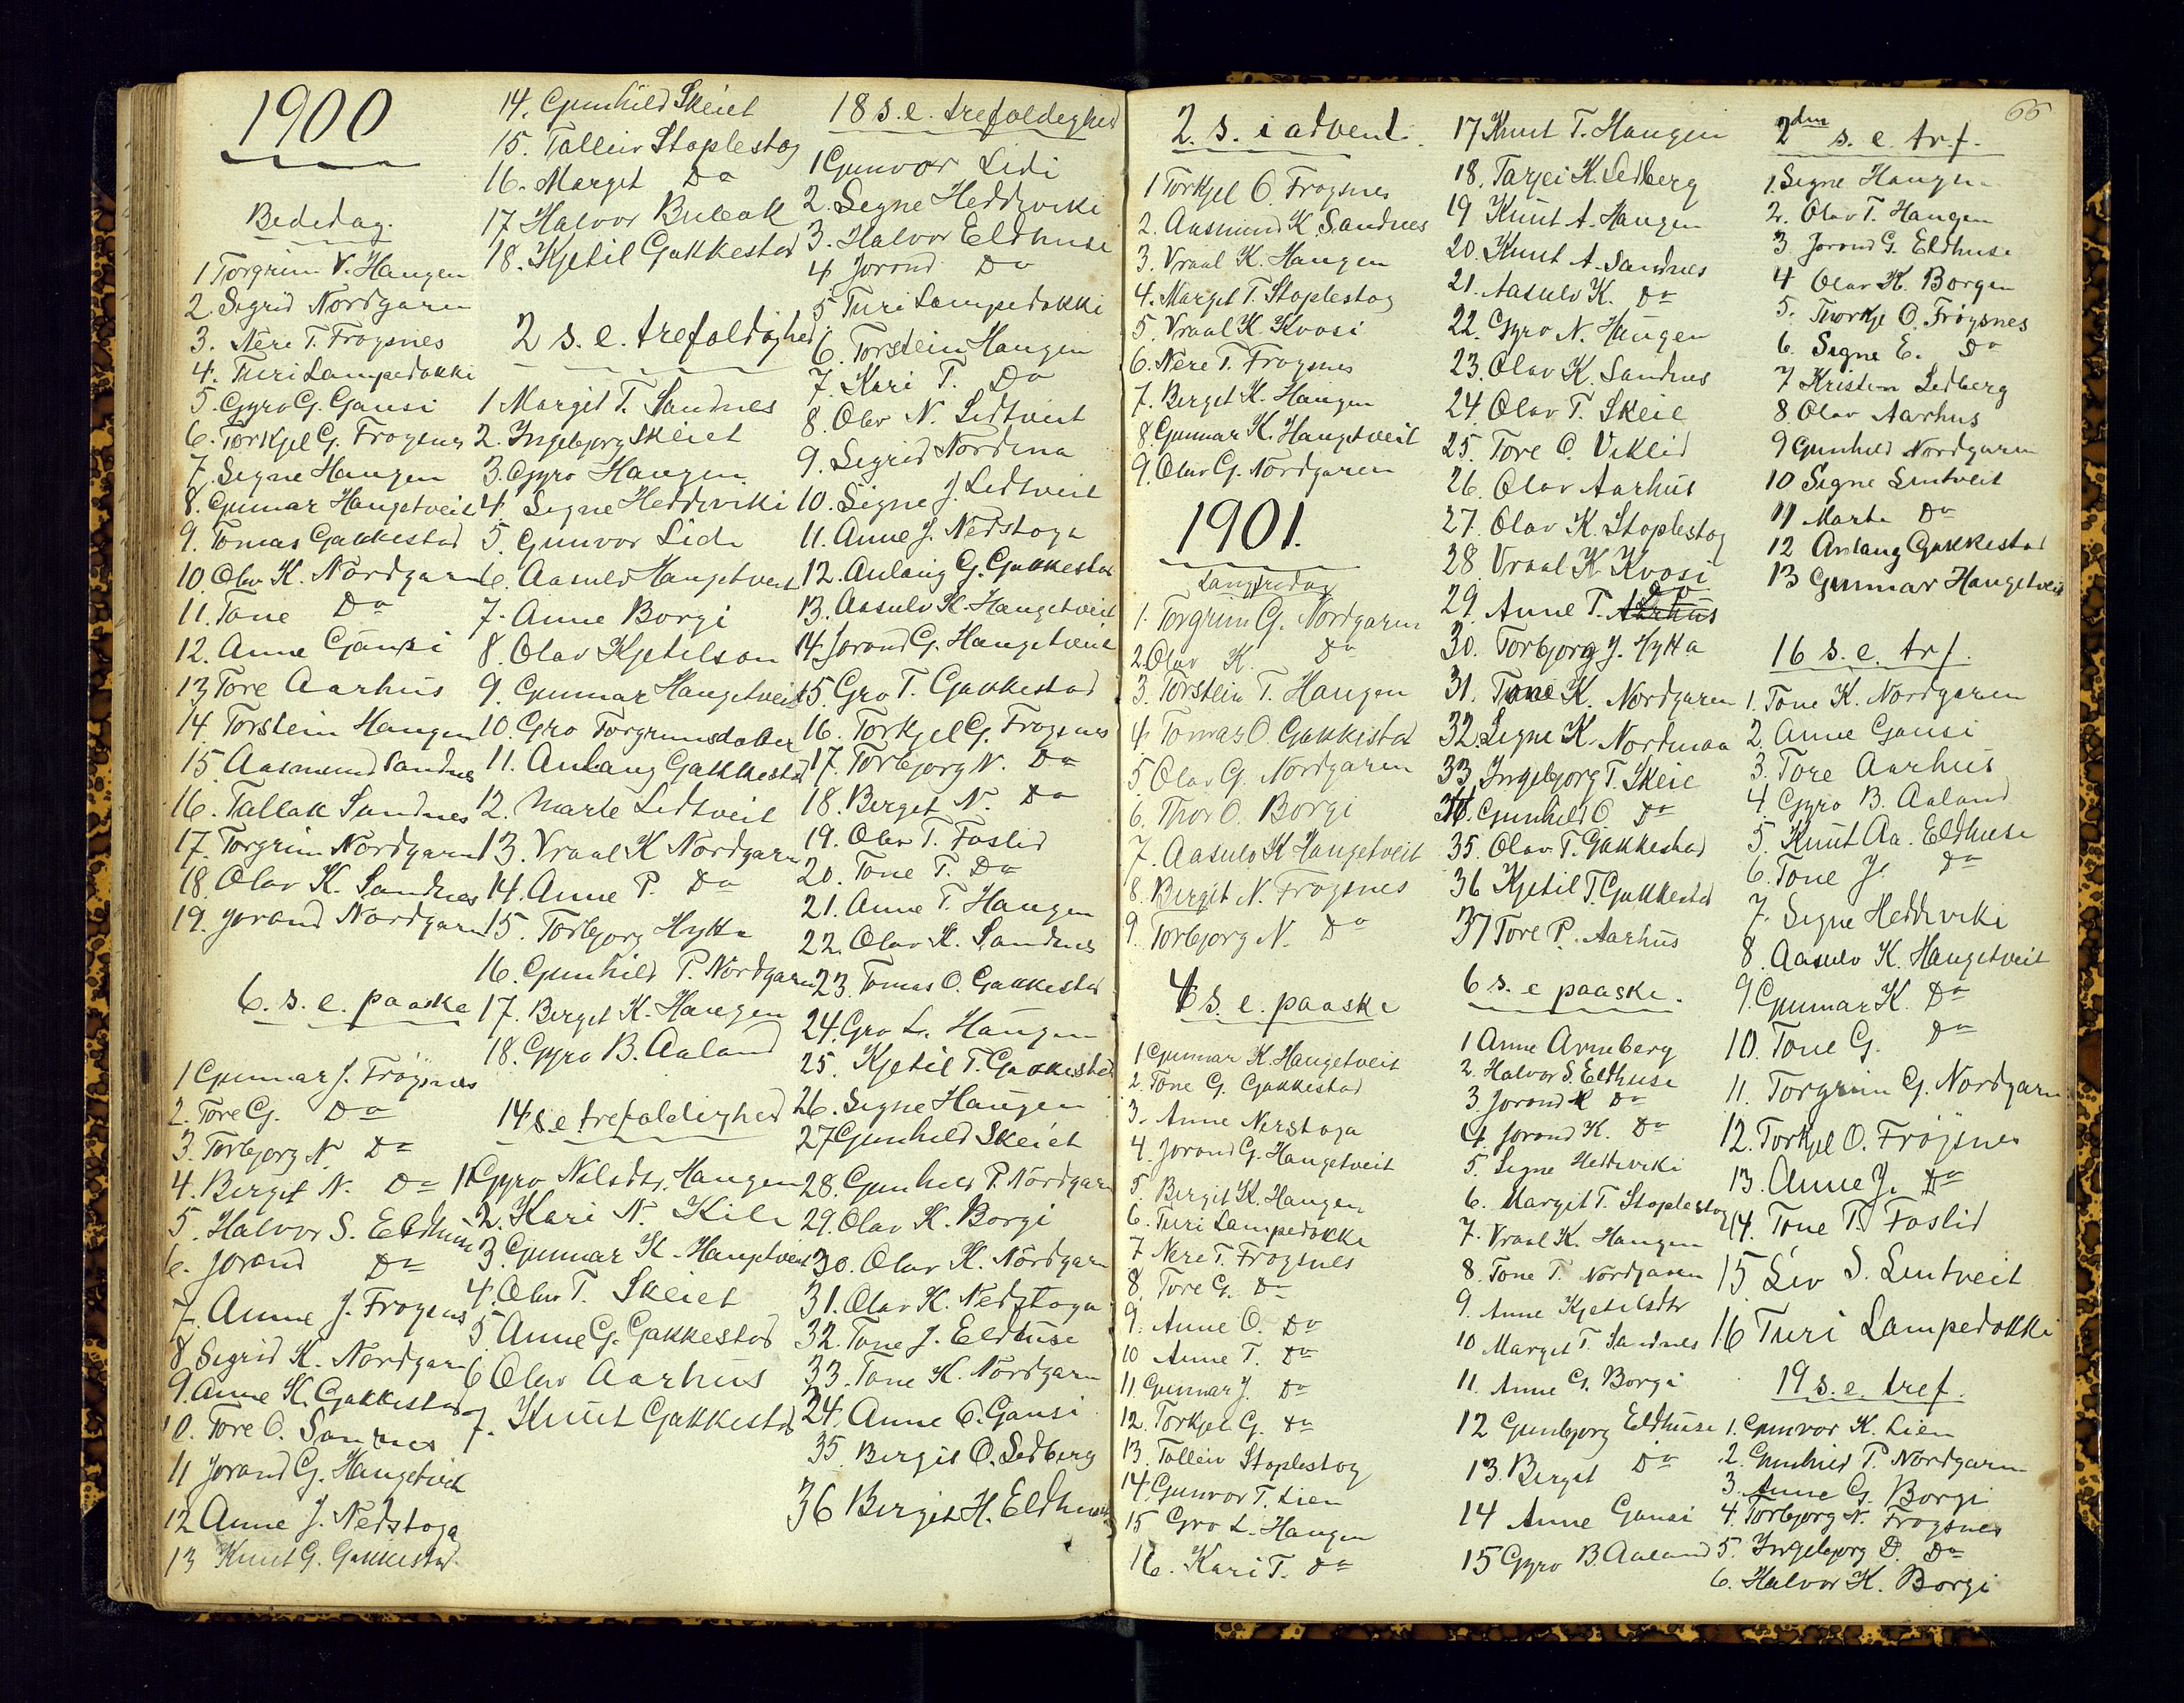 1900
Bededag.
1 Torgrim V. Haugen
2. Sigrid Nordgaren
3. Nere T. Frøysnes
4. Turi Lampedokki
5. Gyro G. Gausi
6. Torkjel G. Frøysnes
7. Signe Haugen
8. Gunnar Haugetveit
9. Tomas Gakkestad
10. Olav K. Nordgaren
11. Tone Do
12. Anne Gausi
13 Tore Aarhus
14. Torstein Haugen
15 Aasmund Sandnes
16. Tallak Sandnes
17. Torgrim Nordgaren
18. Olav K. Sandnes
19. Jorand Nordgaren
6. s. e. paaske
1 Gunnar J. Frøysnes
2. Tore G. Do
3. Torbjorg N. Do
4. Birgit N. Do
5. Halvor S. Eldhuse
6. Jorand Do
7. Anne J. Frøysnes
8 Sigrid K. Nordgaren
9. Anne K. Gakkestad
10. Tore O. Sandnes
11 Jorand G. Haugetveit
12 Anne J. Nedstoga
13 Knut G. Gakkestad
14. Gunhild Skeiet
15. Talleiv Staplestog
16. Margit Do
17 Halvor Buleak
18. Kjetil Gakkestad
2 s. e. trefoldighed
1 Margit T. Sandnes
2. Ingebjorg Skeiet
3. Gyro Haugen
4 Signe Heddeviki
5. Gunvor Lidi
6. Aasulv Haugetveit
7. Anne Borgi
8. Olav Kjetilson
9. Gunnar Haugetveit
10. Gro Torgrimsdatter
11. Anlaug Gakkestad
12. Marte Ledtveit
13. Vraal K Nordgaren
14. Anne P. Do
15. Torbjorg Hytta
16. Gunhild P. Nordgaren
17. Birgit K. Haugen
18. Gyro B. Aaland
14 s. e trefoldighed
1 Gyro Nilsdtr. Haugen
2. Kari N. Kile
3. Gunnar K. Haugetveit
4. Olav T. Skeiet
5 Anne G. Gakkestad
6 Olav Aarhus
7. Knut Gakkestad
18 s. e. trefoldighed
1 Gunvor Lidi
2. Signe Heddeviki
3. Halvor Eldhuse
4 Jorand Do
5 Turi Lampedokki
6. Torstein Haugen
7. Kari T. Do
8. Olav N. Ledtveit
9. Sigrid Nordena
10. Signe J. Ledtveit
11. Anne J. Nedstoga
12. Anlaug G. Gakkestad
13. Aasulv K. Haugetveit
14 Jorand G. Haugetveit
15 Gro T. Gakkestad
16. Torkjel G. Frøysnes
17. Torbjorg N. Do
18. Birgit N. Do
19. Olav T. Foslid
20. Tone T. Do
21. Anne T. Haugen
22. Olav K. Sandnes
23. Tomas O. Gakkestad
24. Gro L. Haugen
25. Kjetil T. Gakkestad
26. Signe Haugen
27 Gunhild Skeiet
28. Gunhild P. Nordgaren
29. Olav K. Borgi
30. Olav K. Nordgaren
31. Olav K. Nedstoga
32. Tone J. Eldhuse
33. Tone K. Nordgaren
24. Anne O. Gausi
35. Birgit O. Ledberg
36 Birgit H. Eldhuse
2. s. i advent.
1 Torkjel O. Frøysnes
2. Aasmund K. Sandnes
3. Vraal K. Haugen
4. Margit T. Staplestog
5. Vraal K. Kvosi
6. Nere T. Frøysnes
7. Birgit K. Haugen
8. Gunnar K. Haugetveit
9. Olav G. Nordgaren
1901.
Langfredag
1. Torgrim G. Nordgaren
2. Olav K. Do
3. Torstein T. Haugen
4. Tomas O. Gakkistad
5. Olav G. Nordgaren
6. Thor O. Borgi
7. Aasulv K Haugetveit
8. Birgit N. Frøysnes
9. Torbjorg N. Do
4 s. e. paaske
1 Gunnar K. Haugetveit
2. Tone G. Gakkestad
3. Anne Nerstoga
4. Jorand G. Haugetveit
5. Birgit K. Haugen
6. Turi Lampedokki
7 Nere T. Frøysnes
8. Tore G. Do
9. Anne O. Do
10 Anne T. Do
11. Gunnar J. Do
12. Torkjel G. Do
13. Talleiv Staplestog
14. Gunvor T. Lien
15 Gro L. Haugen
16. Kari T. Do
17 Knut T. Haugen
18. Tarjei K. Ledberg
19 Knut A. Haugen
20. Knut A. Sandnes
21. Aasulv K. Do
22. Gyro N. Haugen
23. Olav K. Sandnes
24. Olav T. Skeie
25. Tore O. Viklid
26. Olav Aarhus
27. Olav K. Staplestog
28 Vraal K Kvosi
29. Anne T. Aarhus Do
30. Torbjorg J. Hytta
31. Tone K. Nordgaren
32. Signe K. Nordenaa
33. Ingebjorg T. Skeie
34. Gunhild O. Do
35. Olav T. Gakkestad
36 Kjetil T. Gakkestad
37 Tore P. Aarhus
6 s. e paaske.
1 Anne Arneberg
2. Halvor S. Eldhuse
3. Jorand K Do
4. Jorand K. Do
5. Signe Heddeviki
6. Margit T. Staplestog
7. Vraal K. Haugen
8. Tone T. Nordgaren
9. Anne Kjetilsdtr
10 Margit T. Sandnes
11. Anne G. Borgi
12 Gunbjorg Eldhuse
13. Birgit Do
14 Anne Gausi
15 Gyro B Aaland
66
2den s. e. trf.
1. Signe Haugen
2. Olav T. Haugen
3 Jorand G. Eldhuse
4 Olav K. Borgen
5. Thorkje O. Frøysnes
6. Signe E. Do
7 Kristen Ledberg
8. Olav Aarhus
9 Gunhild Nordgaren
10 Signe Lintveit
11 Marte Do
12 Anlaug Gakkestad
13 Gunnar Haugetveit
16 s. e. trf.
1. Tone K. Nordgaren
2. Anne Gausi
3. Tore Aarhus
4. Gyro B. Aaland
5. Knut Aa. Eldhuse
6. Tone J. Do
7. Signe Heddeviki
8. Aasulv K. Haugetveit
9. Gunnar K. Do
10. Tone G. Do
11. Torgrim G. Nordgaren
12. Torkjel O. Frøysnes
13. Anne J. Do
14. Tone T. Foslid
15 Liv S. Lintveit
16 Turi Lampedokki
19 s. e. tref.
1. Gunvor K. Lien
2. Gunhild P. Nordgaren
3. Anne G. Borgi
4. Torbjorg N. Frøysnes
5. Ingebjorg D. Do
6. Halvor K. Borgi